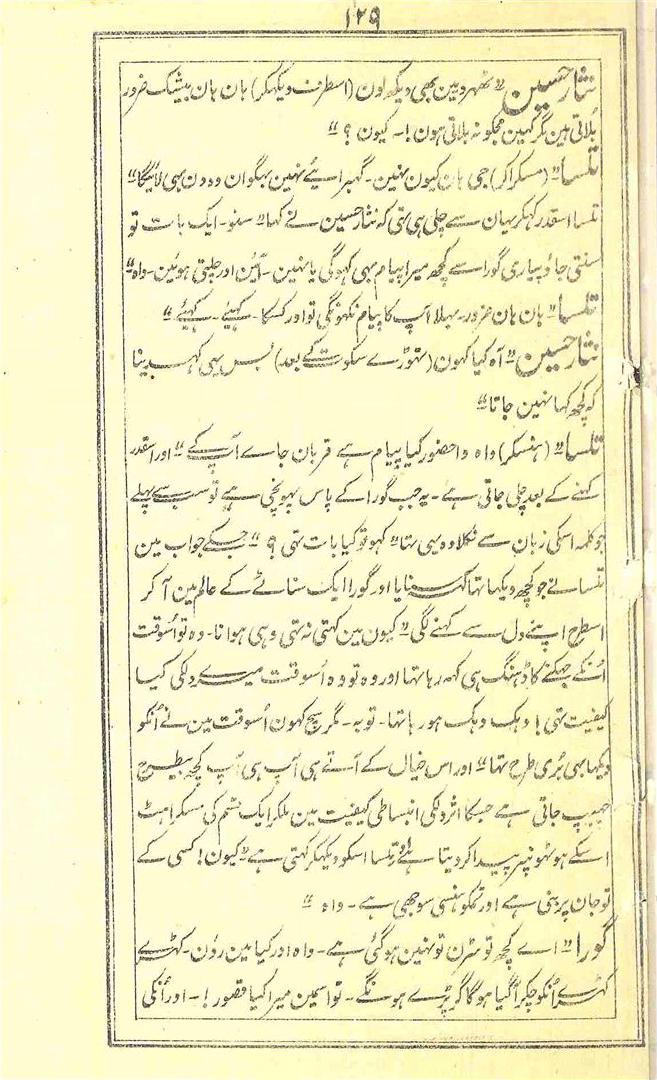 ۱۲۹
نثار حسین "ٹھہرو مین بھی دیکھ لون (اسطرف دیکھکر) ہان ہان بیشک ضرور
بُلاتی ہین مگر کہین مجکو نہ بلاتی ہون!۔ کیون ؟"
تلسا" (مسکراکر) جی ہان کیون نہین۔ گہبرائیے نہین بہگوان وہ دن بہی لائیگا"
تلسا اسقدر کہکر یہان سے چلی ہی تہی کہ نثار حسین نے کہا" سنو۔ ایک بات تو
سنتی جاؤ پیاری گورا سے کچھ میرا پیام بہی کہوگی یا نہین۔ آئین اور چلتی ہوئین۔ واہ"
تلسا"۔ ہان ہان ضرور۔ بہلا آپ کا پیام نکہونگی تو اور کسکا۔ کہیئے۔ کہیئے"
نثار حسین" آہ کیا کہون (تہوڑے سکوت کے بعد) بس یہی کہدینا
کہ کچھ کہا نہین جاتا"
تلسا" (ہنسکر) واہ وا حضور کیا پیام ہے قربان جاے آپ کے" اور اسقدر
کہنے کے بعد چلی جاتی ہے۔ یہ جب گورا کے پاس پہونچی ہے تو سب سے پہلے
جو کلمہ اسکی زبان سے نکلا وہ یہی تہا" کہو تو کیا بات تہی ؟" جسکے جواب مین
تلسا نے جو کچھ دیکہا تہا کہہ سنایا اور گورا ایک سناٹے کے عالم مین آ کر
اسطرح اپنے دل سے کہنے لگی" کیون مین کہتی نہ تہی وہی ہوا نا۔ وہ تو اُسوقت
اُنکے جہکنے کا ڈہنگ ہی کہہ رہا تہا اور وہ تو وہ اُسوقت میرے دلکی کیا
کیفیت تہی! دہک دہک ہو رہا تہا۔ توبہ۔ مگر سچ کہون اُسوقت مین نے اُنکو
دیکہا بہی بُری طرح تہا" اور اس خیال کے آتے ہی آپ ہی آپ کچھ بیطرح
جہیپ جاتی ہے جسکا اثر دلکی انبساطی کیفیت مین ملکر ایک قسم کی مسکراہٹ
اسکے ہونٹونپر پیدا کر دیتا ہے اور تلسا اسکو دیکہکر کہتی ہے" کیون! کسی کے
تو جان پر بنی ہے اور تمکو ہنسی سوجھی ہے۔ واہ"
گورا" اے کچھ تو سڑن تو نہین ہو گئی ہے۔ واہ اور کیا مین روُن۔ کہڑے
کہڑے اُنکو چکر آگیا ہوگا گر پڑے ہونگے۔ تو اسمین میرا کیا قصور!۔ اور اُنکی